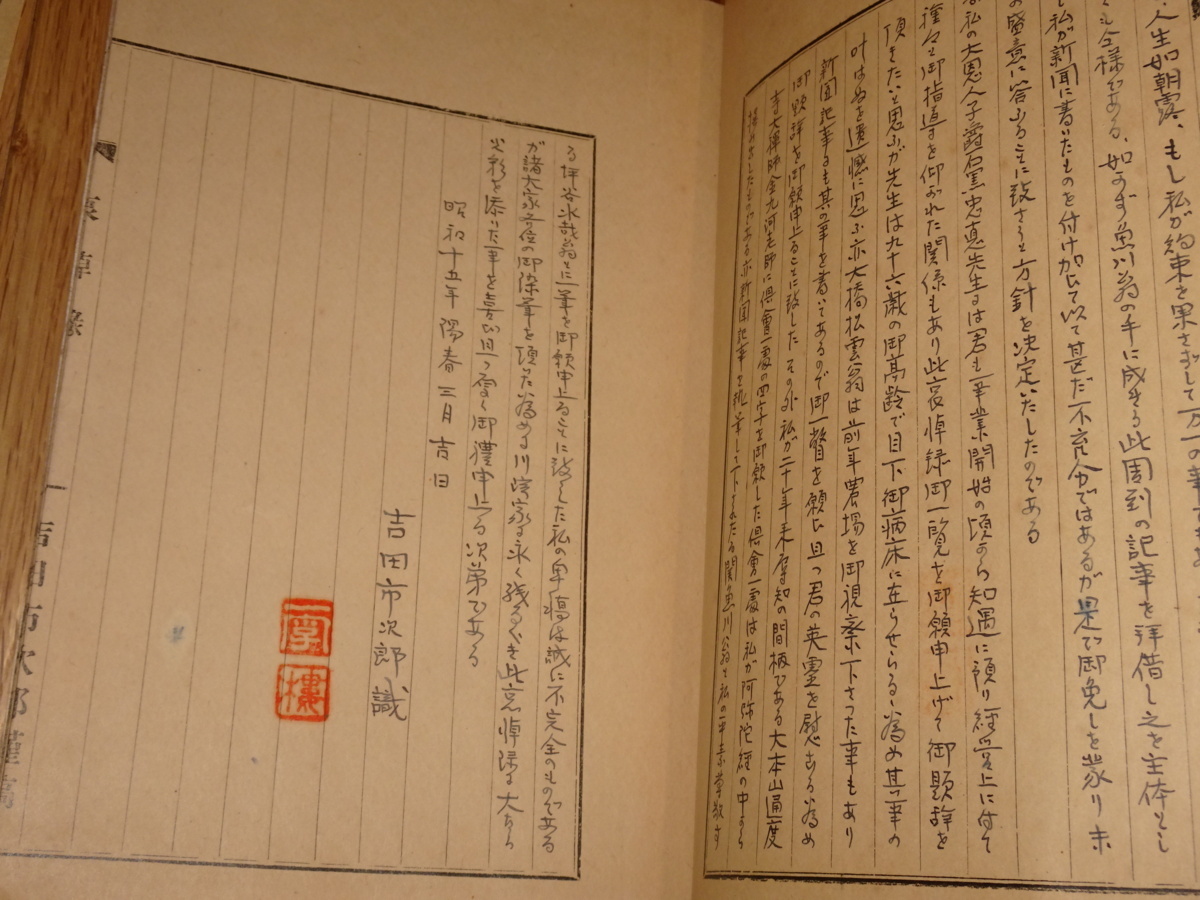 人生如朝露、もし私が約束を果さずして万一の事
も今様である、如かず魚川翁の手に成れる此周到の記事を拝借し之を主体とし
私が新聞に書いたものを付け加へて以て甚だ不充分ではあるが是で御免しを蒙り未
の盛意に答ふることに致さうと方針を決定いたしたのである
私の大恩人子爵石黒忠悳先生は君も事業開始の頃から知遇に預り経営上に付て
種々と御指導を仰がれた関係もあり此哀悼録御一覧を御願申上げて御題辞を
頂きたいと思ふが先生は九十六歳の御高齢で目下御病床に在らせらるゝ為め其事の
叶はぬを遺憾に思ふ亦大橋松雲翁は前年農場を御視察下さつた事もあり
新聞記事にも其の事を書いてあるので御一瞥を願ひ且つ君の英霊を慰むる為め
御題辞を御願申上ることに致した その外私が二十年来辱知の間柄である大本山通度
寺大禅師金九河老師に倶會一處の四字を御願した倶會一處は私が阿弥陀経の中から
撰み出したものである亦新聞記事を執筆して下さつたる関魚川翁と私の
る坪谷水哉翁とに一筆を御願申上ることに致した私の草稿は誠に不完全のものである
が諸大家各位の御染筆を頂いた為める川濟家に永く残るべき此哀悼録に大なる
光彩を添いた事を喜び且つ厚く御禮申上る次第である
昭和十五年陽春三月吉日
吉田市次郎識
哀悼録
一
吉田市次郎謹稿